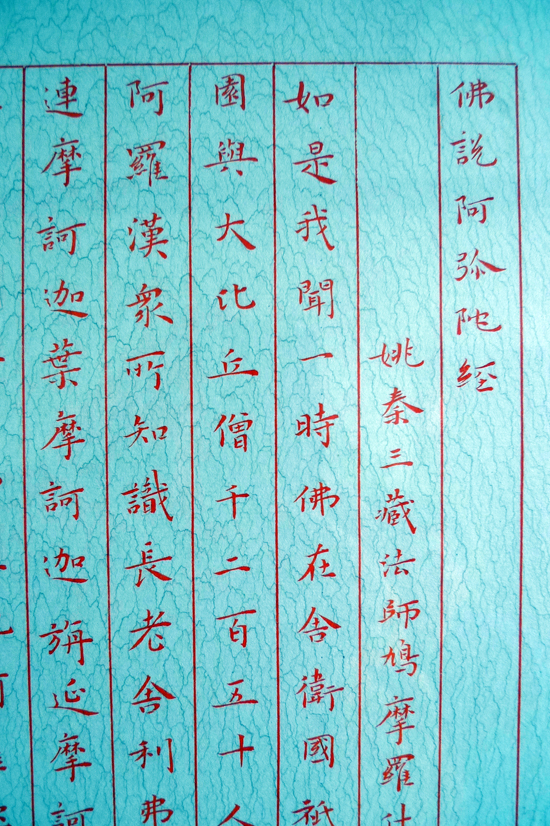 佛說阿弥陀経
姚秦三藏法師鳩摩羅什
如是我聞一時佛在舎衛國祇
園與大比丘僧千二百五十人
阿羅漢衆所知識長老舎利弗
連摩訶迦葉摩訶迦旃延摩訶